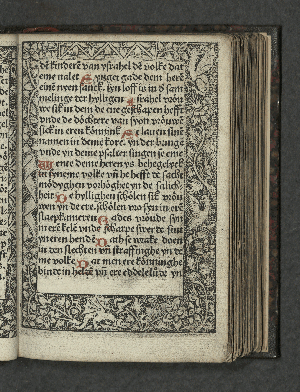 dē kinderē van ysrahel dē volke dat
eme nalet Synget gade dem herē
enē nyen sanck. syn loff is in d' sam
melinge der hylligen Israhel vrou
we sik in dem de ene geschapen hefft
vnde de döchtere van syon vrouwē
sick in eren könninck Se lauen sinē
namen in deme kore. yn der bunge
vnde yn deme psalter singen se eme
wente deme heren ys behegelyck
in syneme volke vn̄ he hefft de sacht
mödyghen vorhöghet yn de salich
heit De hyllighen schölen sik vrou
wen yn der ere. schölen vro syn in erē
slapkameren Gades vroude syn
in erē kele vnde scharpe swerde syn
yn eren hendē Dath se wrake doen
in den slechten vn̄ straffinghe yn de
me volke Dat men ere könninghe
binde in helzē vn̄ ere eddelelüde yn